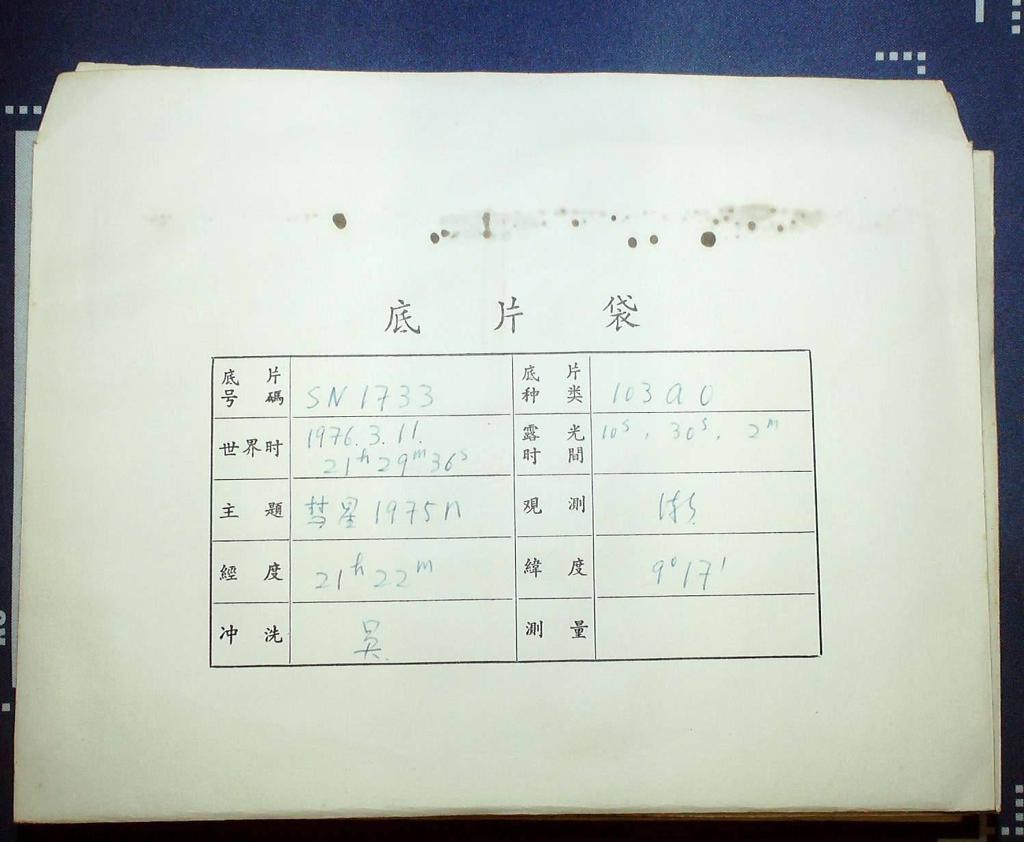 底片袋
底片号碼 SN1733 底片种类 103aO
世界时 1976.3.11. 21ʰ29ᵐ36ˢ 露光时間 10ˢ, 30ˢ, 2ᵐ
主題 彗星1975n 观測
經度 21ʰ22ᵐ 緯度 9°17′
冲洗 吴 測量